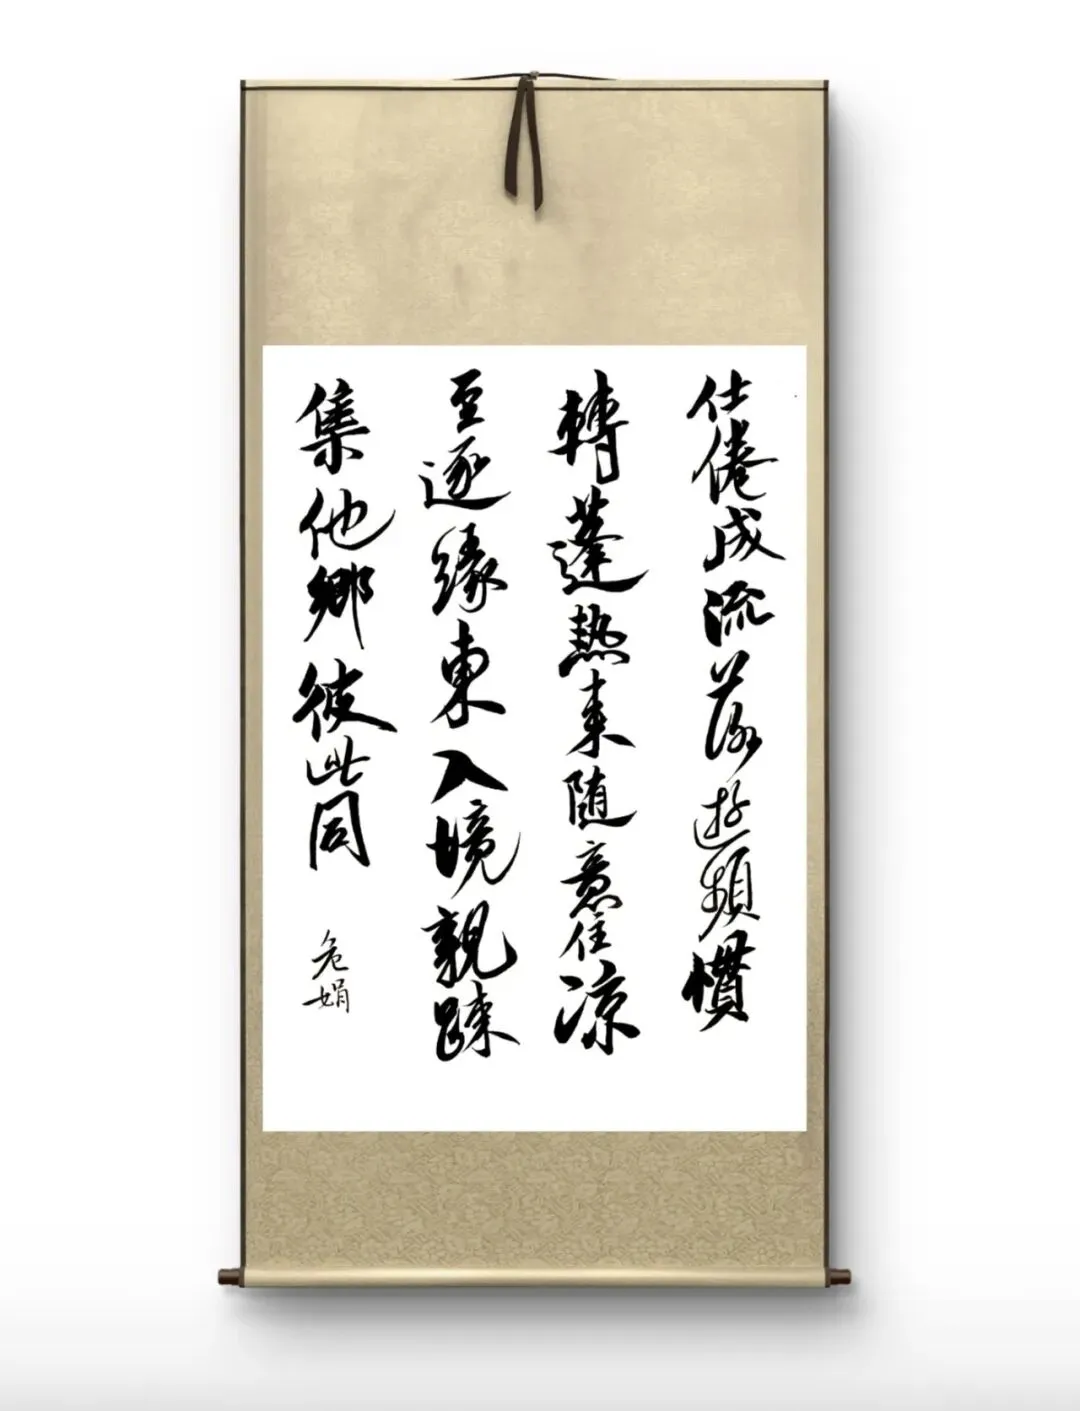 仕倦成流落遊頻慣
轉蓬熱来随意住凉
至逐緣東入境親踈
集他鄉彼此同
危娟